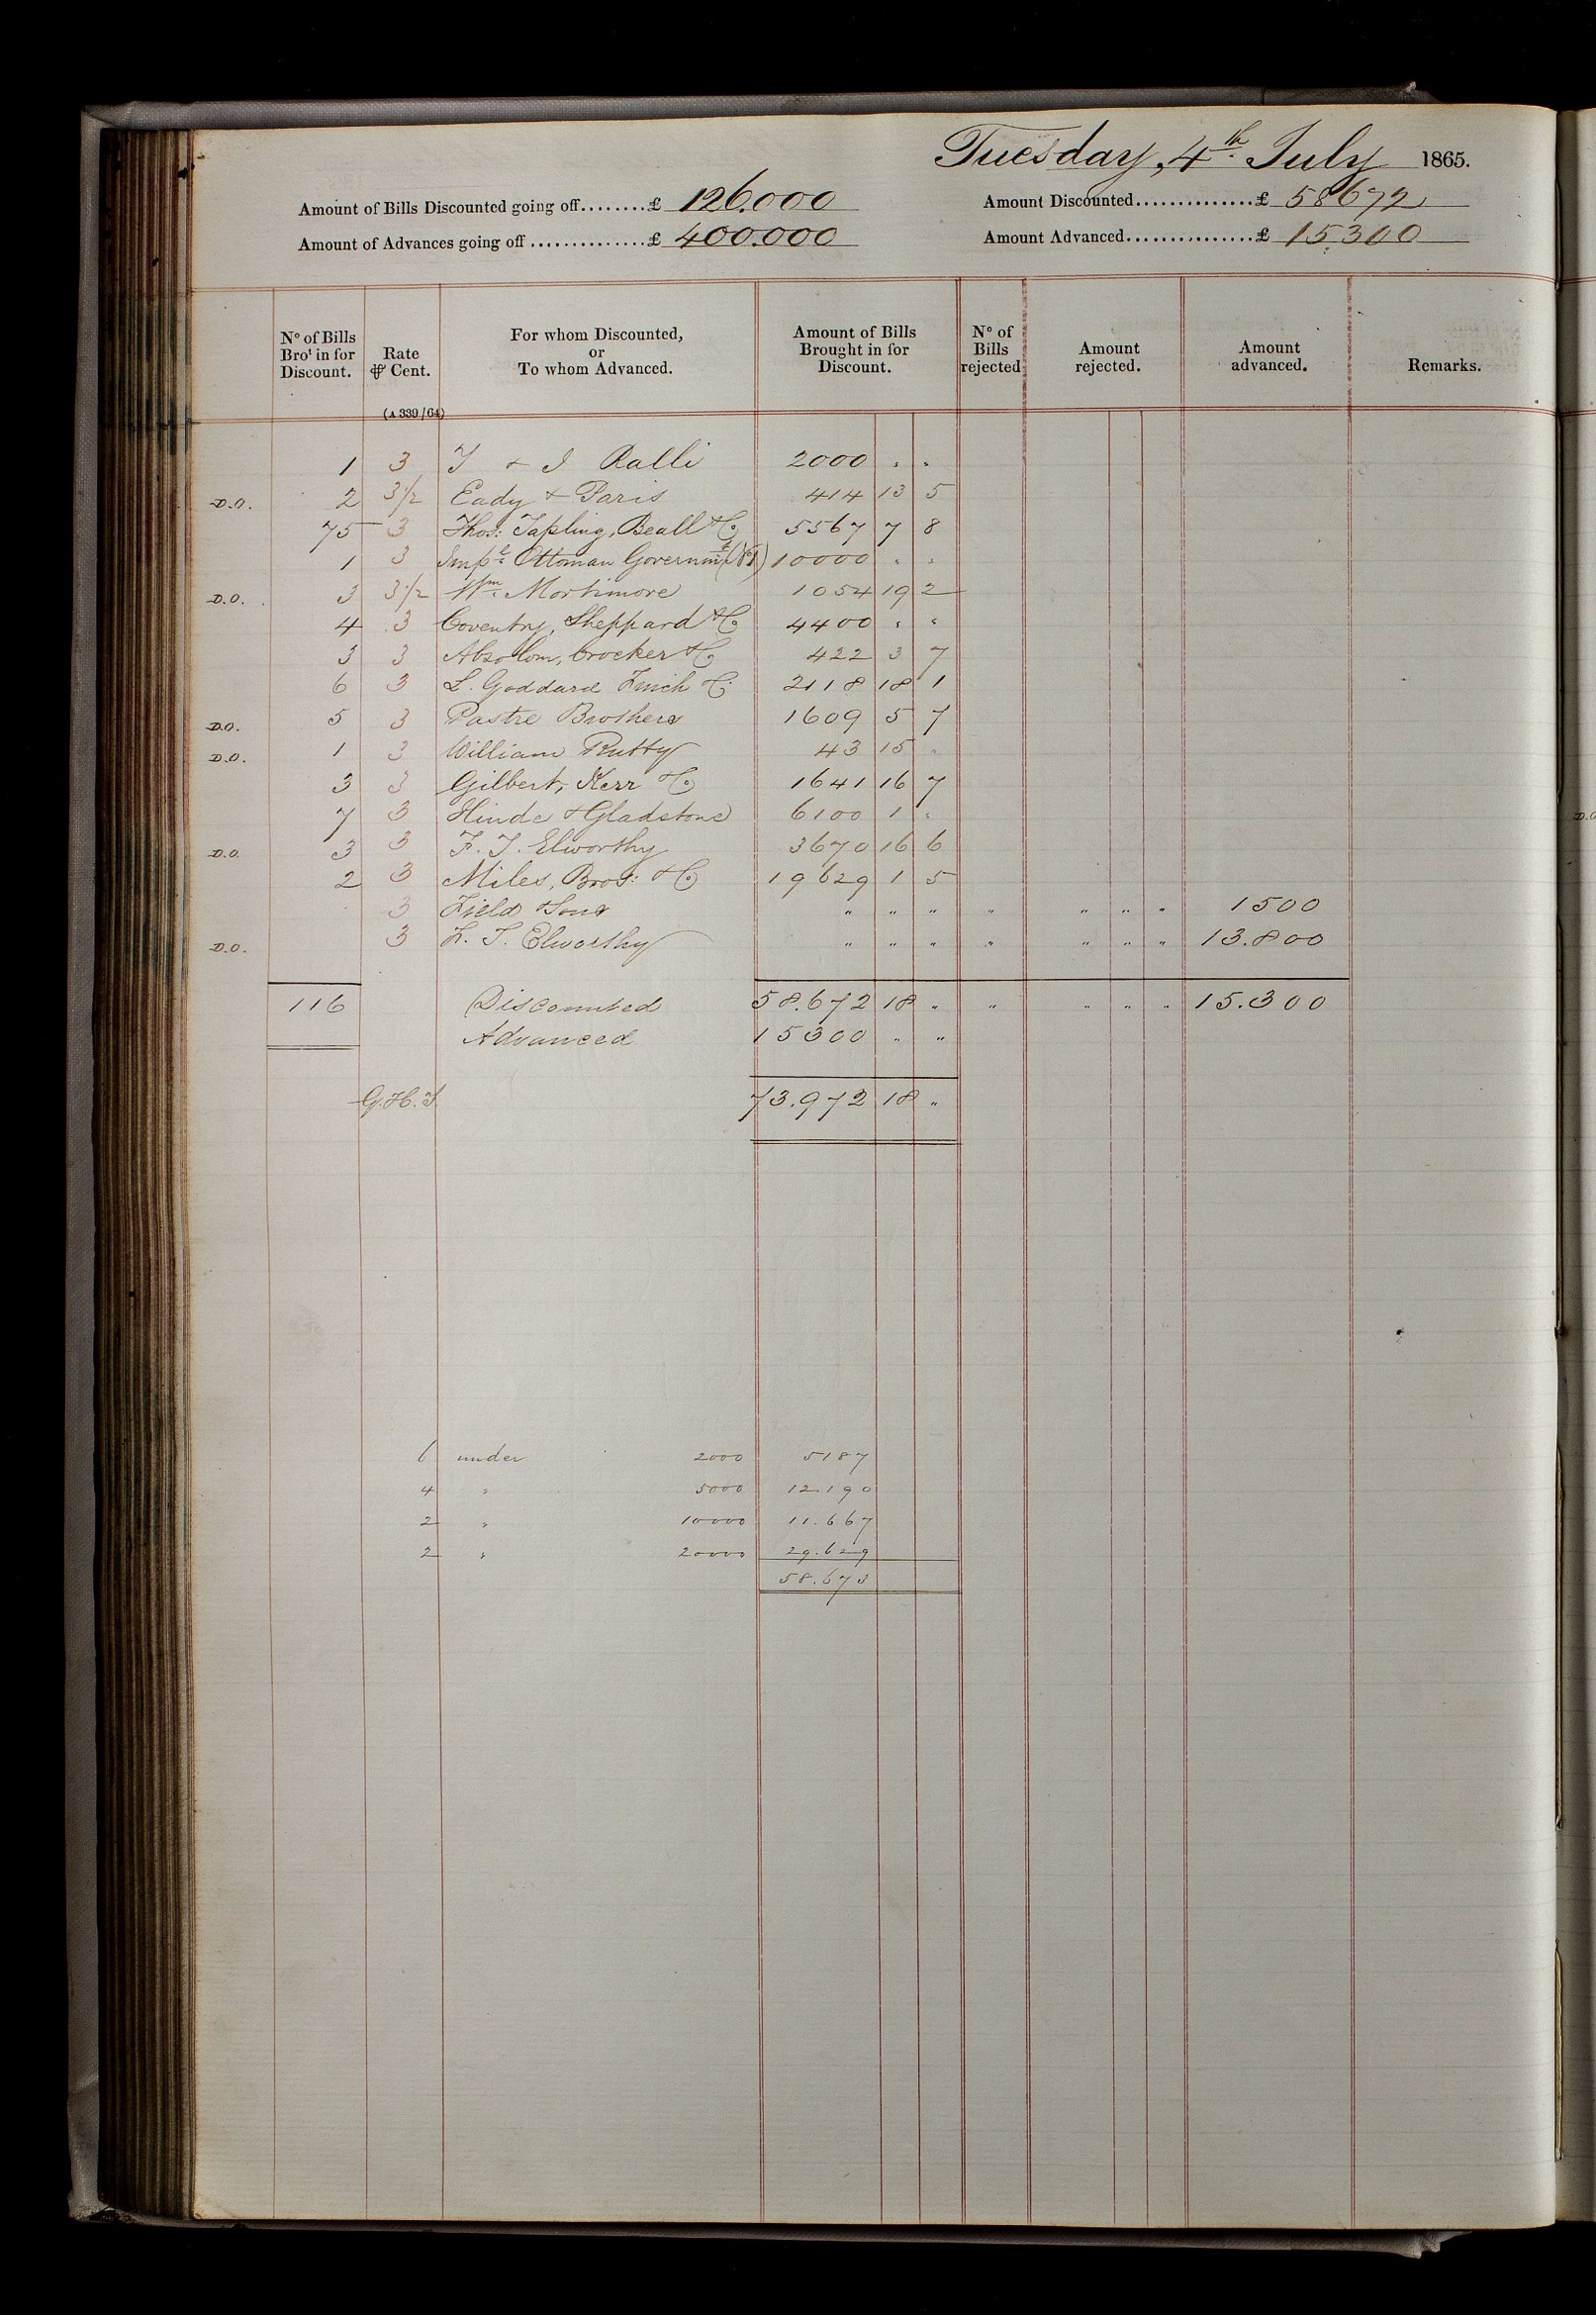 Tuesday, 4th July 1865.
Amount of Bills Discounted going off........£ 126.000
Amount Discounted..............£ 58672
Amount of Advances going off..............£ 400.000
Amount Advanced................£ 15300
No of Bills Brot in for Discount. Rate ⅌ Cent. For whom Discounted, or To whom Advanced. Amount of Bills Brought in for Discount. No of Bills rejected. Amount rejected. Amount advanced. Remarks.
(A 339/64)
1 3 T & J Ralli 2000 " "
D.O. 2 3½ Eady & Paris 414 13 5
75 3 Thos: Tapling, Beall & Co 5567 7 8
1 3 Impl Ottoman Governmt (No1) 10000 " "
D.O. 3 3½ Wm Mortimore 1054 19 2
4 3 Coventry, Sheppard & Co 4400 " "
3 3 Absolom, Crocker & Co 422 3 7
6 3 L. Goddard Finch & Co 2118 18 1
D.O. 5 3 Pastre Brothers 1609 5 7
D.O. 1 3 William Rutty 43 15 "
3 3 Gilbert, Kerr & Co 1641 16 7
7 3 Hinde & Gladstone 6100 1 "
D.O. 3 3 F. T. Elworthy 3670 16 6
2 3 Miles, Bros: & Co 19629 1 5
3 Field & Sons " " " " " " " 1500
D.O. 3 F. T. Elworthy " " " " " " " 13.800
116 Discounted 58.672 18 " " " " " 15.300
Advanced 15300 " "
G.H.T. 73.972 18 "
6 under 2000 5187
4 " 5000 12.190
2 " 10000 11.667
2 " 20000 29.629
58.673